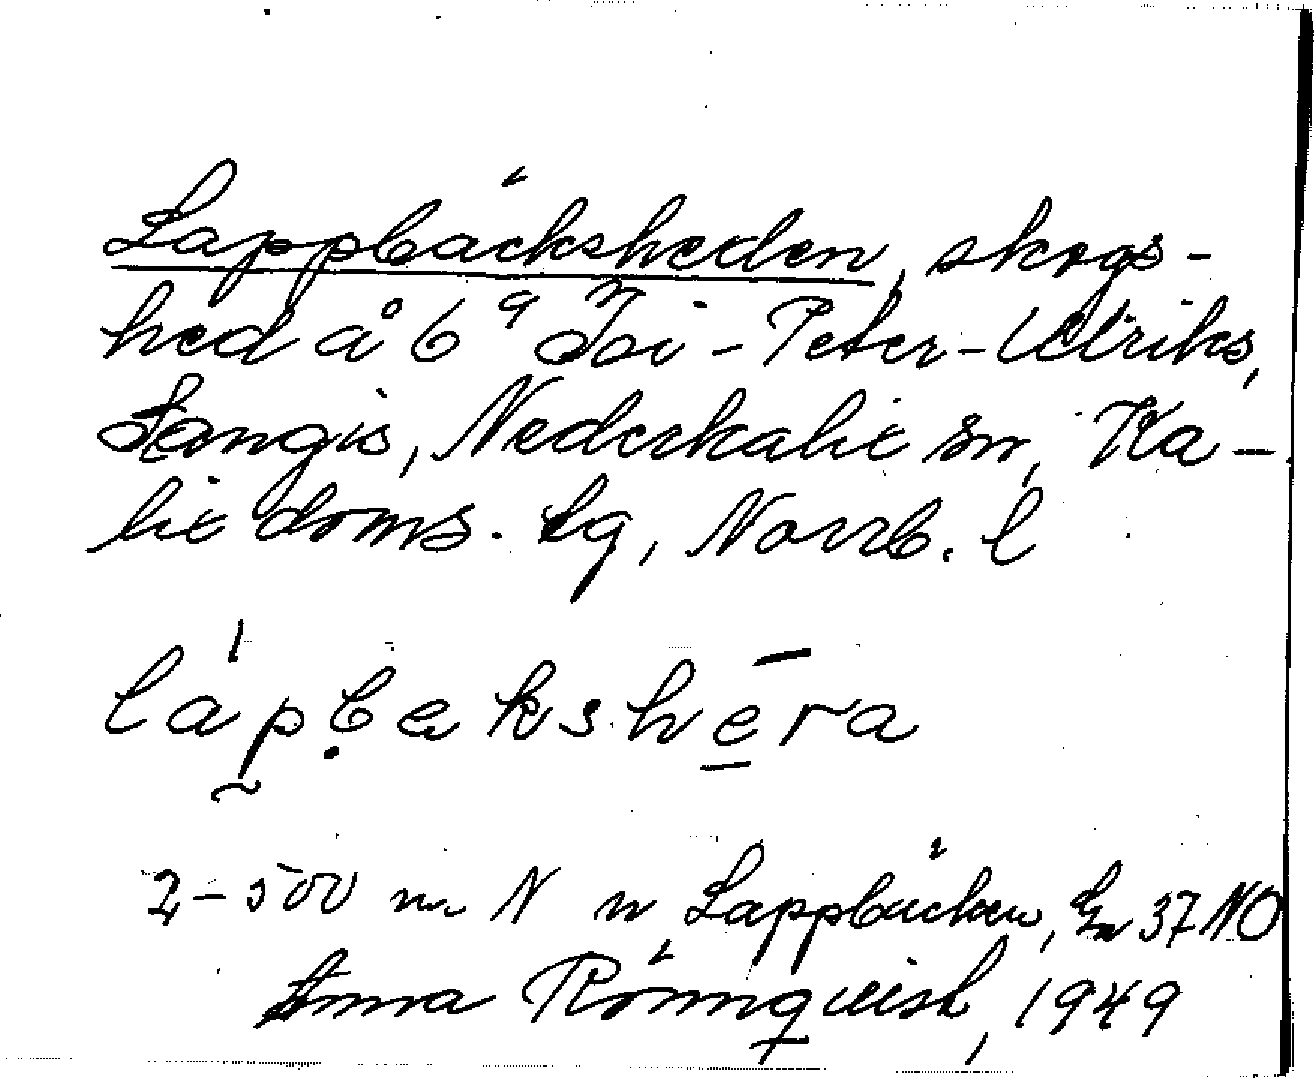 Lappbäcksheden, skogs-
hed å 6 q Toi-Peter-Ulriks,
Sangis, Nederkalix sn, Ka-
lix doms. lg, Norrb. l
lápbækshēra
2-500 m N n Lappbäcken, 37 NO
Anna Rönnqvist, 1949